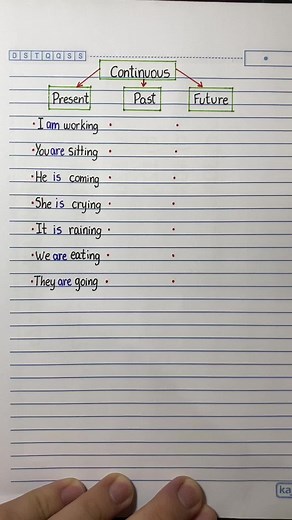 D S T Q Q S S
Continuous
Present Past Future
• I am working • •
• You are sitting • •
• He is coming • •
• She is crying • •
• It is raining • •
• We are eating • •
• They are going • •